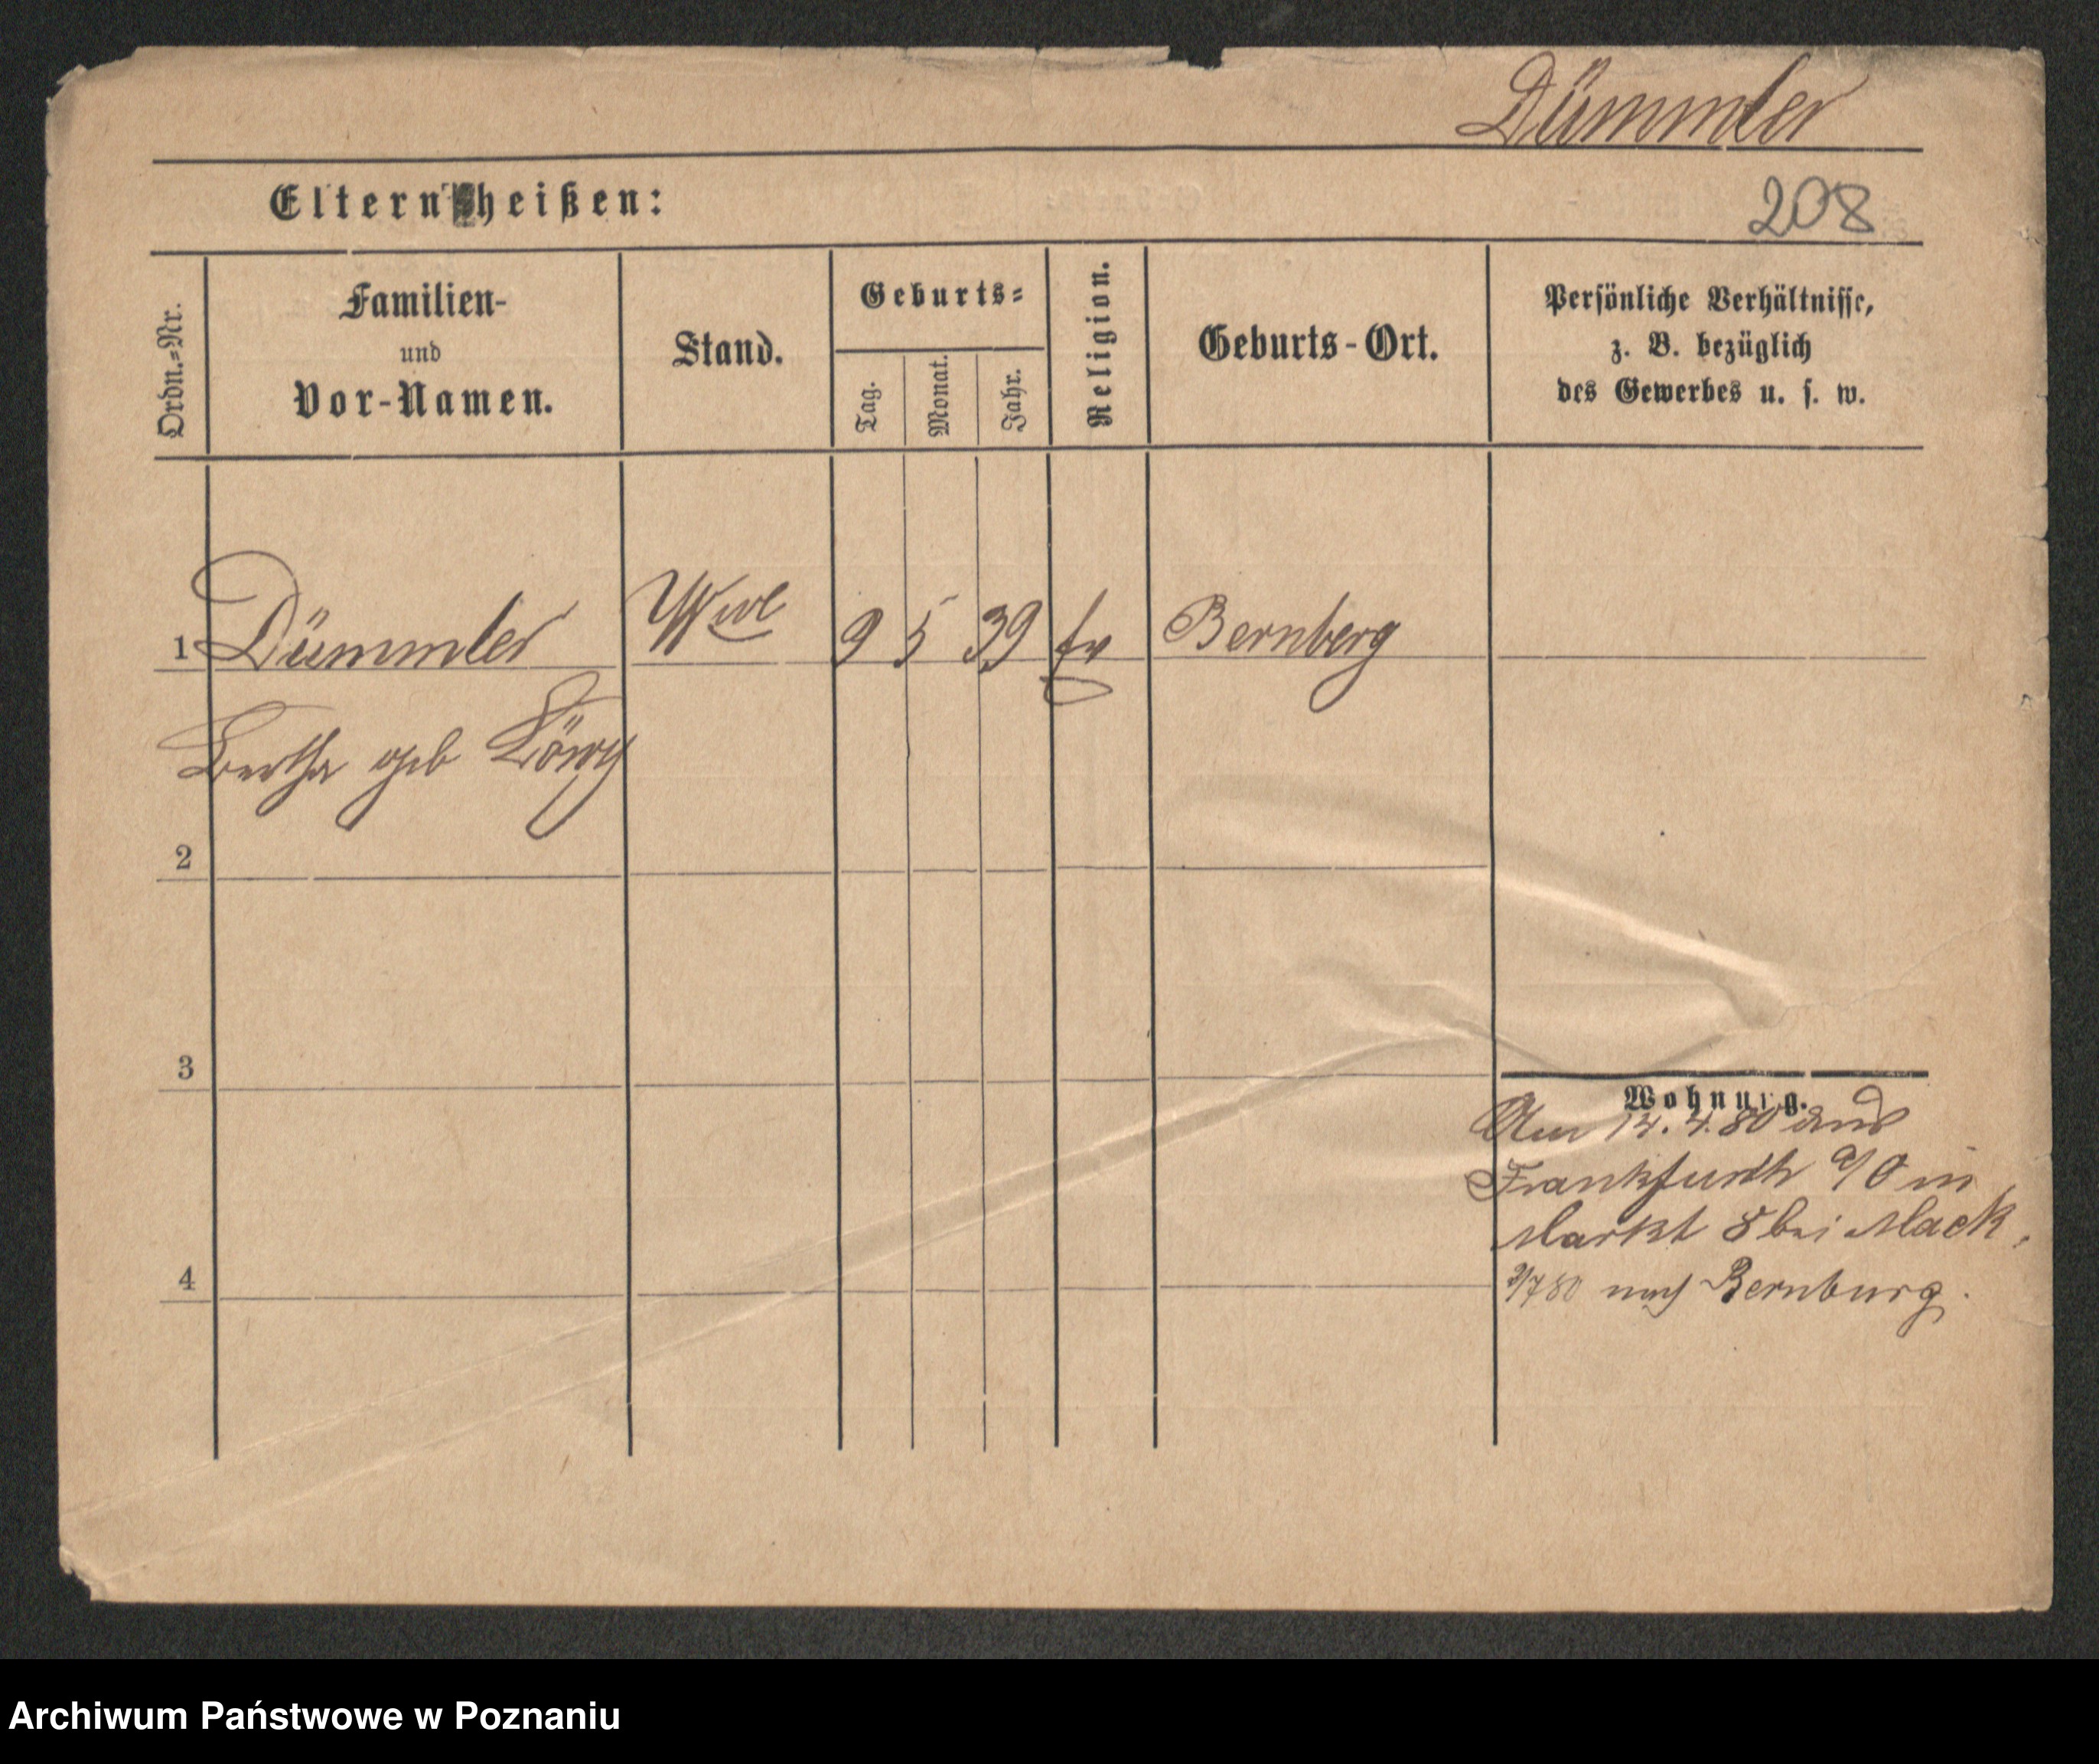 Dümmler
Eltern heißen:
208
Ordn.=Nr.
Familien-
und
Vor-Namen.
Stand.
Geburts=
Tag.
Monat.
Jahr.
Religion.
Geburts-Ort.
Persönliche Verhältnisse,
z. B. bezüglich
des Gewerbes u. s. w.
1 Dümmler Wwe 9 5 39 ev Bernberg
Bertha geb
2
3
4
Wohnung.
14.4.80 aus
Frankfurth a/O in
Markt 8 bei Mack,
/7 80 nach Bernburg.
Archiwum Państwowe w Poznaniu